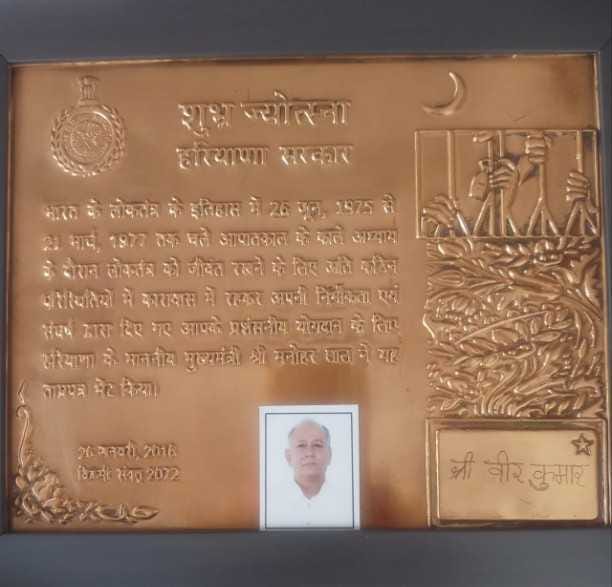 शुभ्र ज्योत्स्ना
हरियाणा सरकार
भारत के लोकतंत्र के इतिहास में 26 जून, 1975 से
21 मार्च, 1977 तक चले आपातकाल के काले अध्याय
के दौरान लोकतंत्र को जीवंत रखने के लिए अति कठिन
परिस्थितियों में कारावास में रहकर अपनी निर्भीकता एवं
संघर्ष द्वारा दिए गए आपके प्रशंसनीय योगदान के लिए
हरियाणा के माननीय मुख्यमंत्री श्री मनोहर लाल ने यह
ताम्रपत्र भेंट किया।
26 जनवरी, 2016
विक्रमी संवत् 2072
श्री वीर कुमार